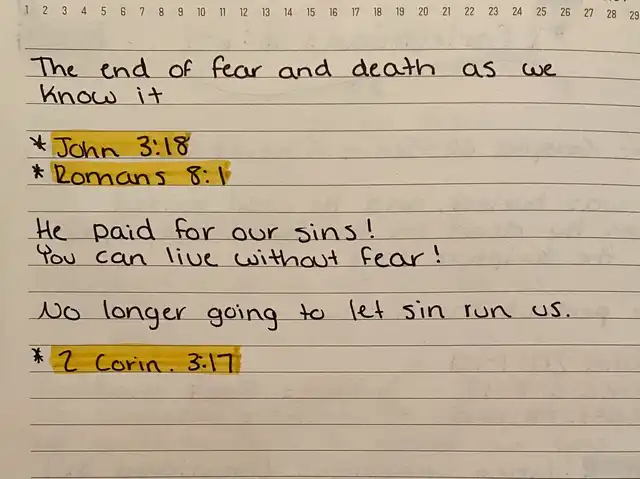 1 2 3 4 5 6 7 8 9 10 11 12 13 14 15 16 17 18 19 20 21 22 23 24 25 26 27 28 29
The end of fear and death as we
know it
* John 3:18
* Romans 8:1
He paid for our sins!
You can live without fear!
No longer going to let sin run us.
* 2 Corin. 3:17